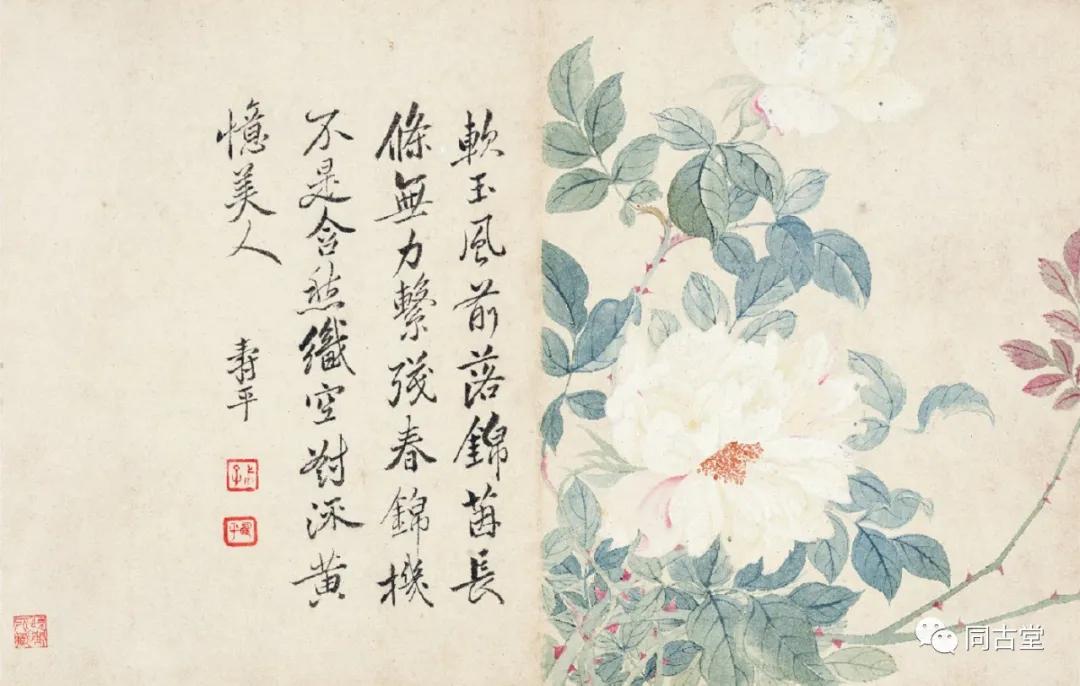 軟玉風前落錦茵長
條無力繫殘春錦機
不是含愁織空對流黃
憶美人
壽平
同古堂